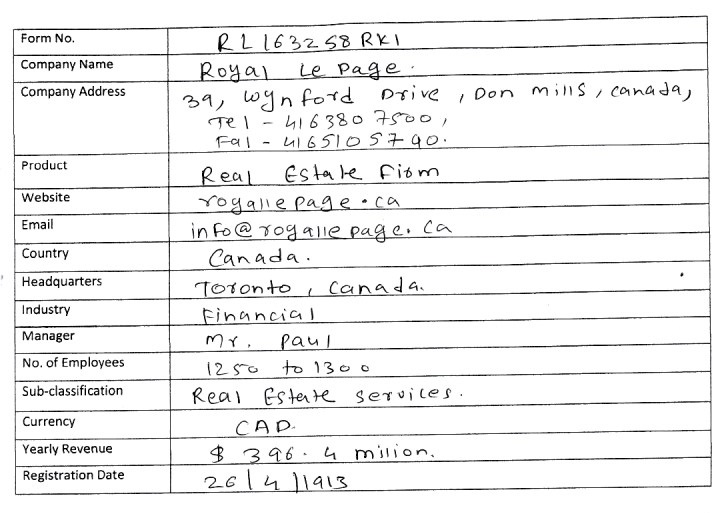 Form No. RL163258RK1
Company Name Royal Le Page.
Company Address 39, Wynford Drive, Don mills, Canada,
Tel - 416380 7500,
Fal - 4165105790.
Product Real Estate Firm
Website royallepage.ca
Email info@royallepage.ca
Country Canada.
Headquarters Toronto, Canada.
Industry Financial
Manager Mr. Paul
No. of Employees 1250 to 1300
Sub-classification Real Estate services.
Currency CAD.
Yearly Revenue $ 396.4 million.
Registration Date 26/4/1913